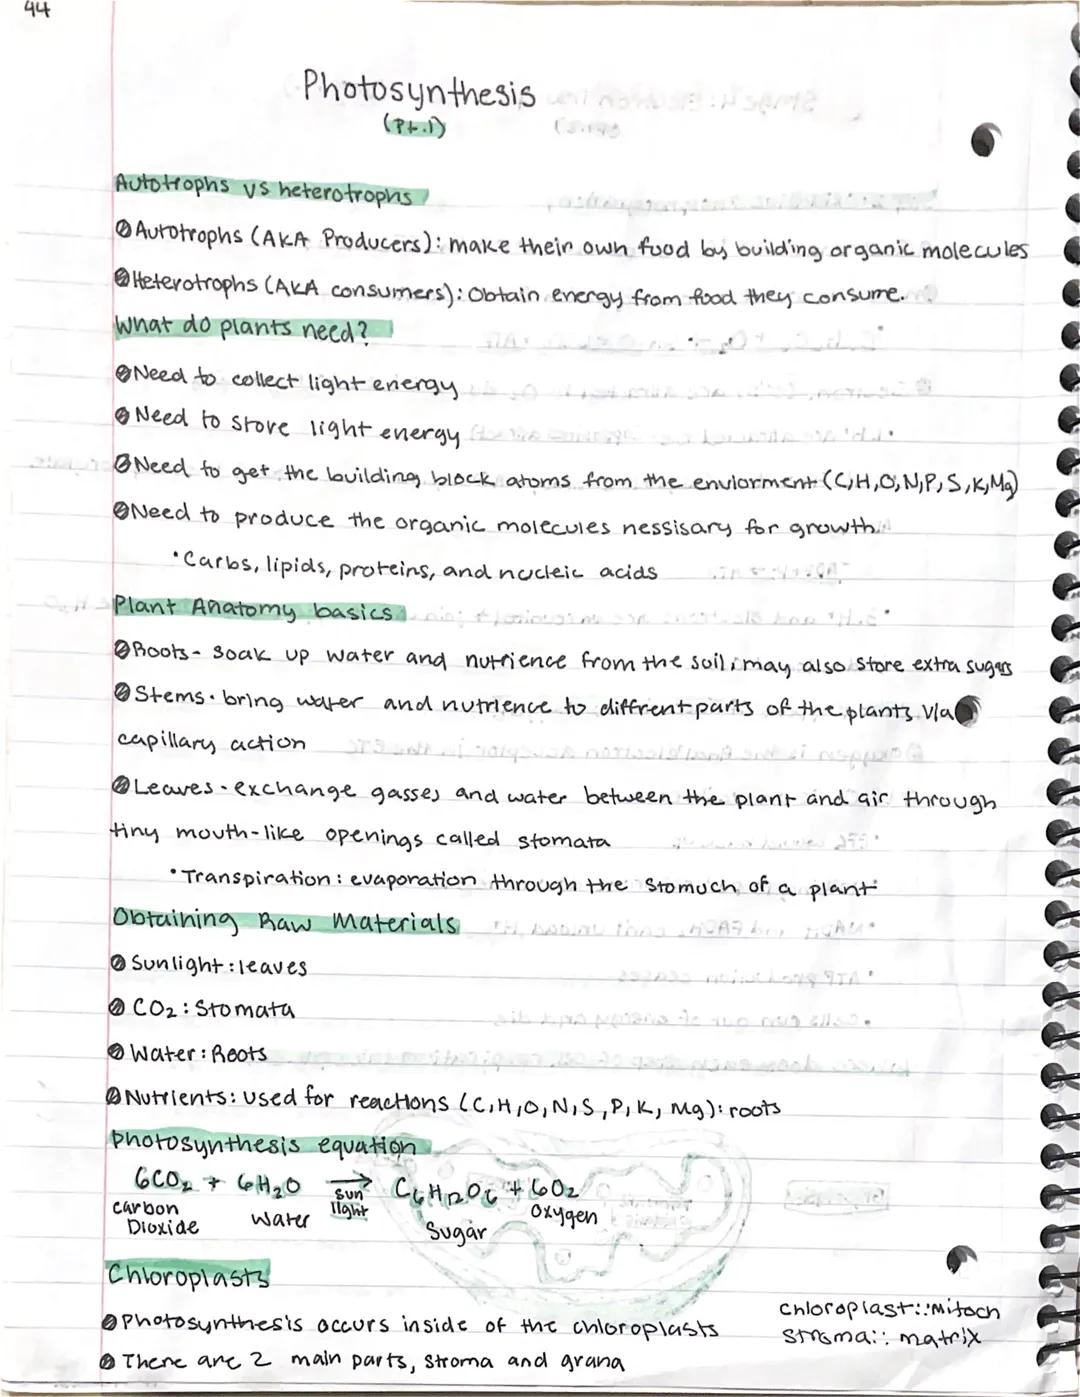 44
Photosynthesis
(Pt.1)
Autotrophs vs heterotrophs
Autotrophs (AKA Producers): make their own food by building organic molecules
Heterotrophs (AKA consumers): Obtain energy from food they consume.
What do plants need?
Need to collect light energy
Need to store light energy
Need to get the building block atoms from the enviorment (C,H,O,N,P,S,K,Mg)
Need to produce the organic molecules nessisary for growth
•Carbs, lipids, proteins, and nucleic acids
Plant Anatomy basics
Roots- soak up water and nutrience from the soil; may also store extra sugars
Stems- bring water and nutrience to diffrent parts of the plants via
capillary action
Leaves- exchange gasses and water between the plant and air through
tiny mouth-like openings called stomata
•Transpiration: evaporation through the stomuch of a plant
Obtaining Raw Materials
Sunlight: leaves
CO₂: Stomata
Water: Roots
Nutrients: used for reactions (C,H,O,N,S,P,K, Mg): roots
photosynthesis equation
6CO₂ + 6H₂O → C₆H₁₂O₆ + 6O₂
sun light
carbon Dioxide water Sugar oxygen
Chloroplasts
Photosynthesis occurs inside of the chloroplasts
There are 2 main parts, stroma and grana
chloroplast::Mitoch
stroma:: matrix